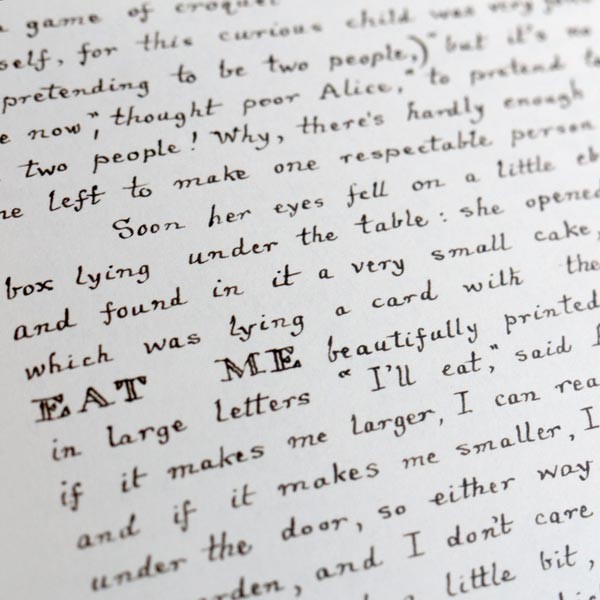 game of croquet
self, for this curious child was very
pretending to be two people,) "but it's no
now", thought poor Alice, "to pretend to
two people! Why, there's hardly enough
left to make one respectable person
Soon her eyes fell on a little
box lying under the table: she opened
and found in it a very small cake,
which was lying a card with the
EAT ME beautifully printed
in large letters "I'll eat," said
if it makes me larger, I can
and if it makes me smaller, I
under the door, so either way
and I don't care
little bit,